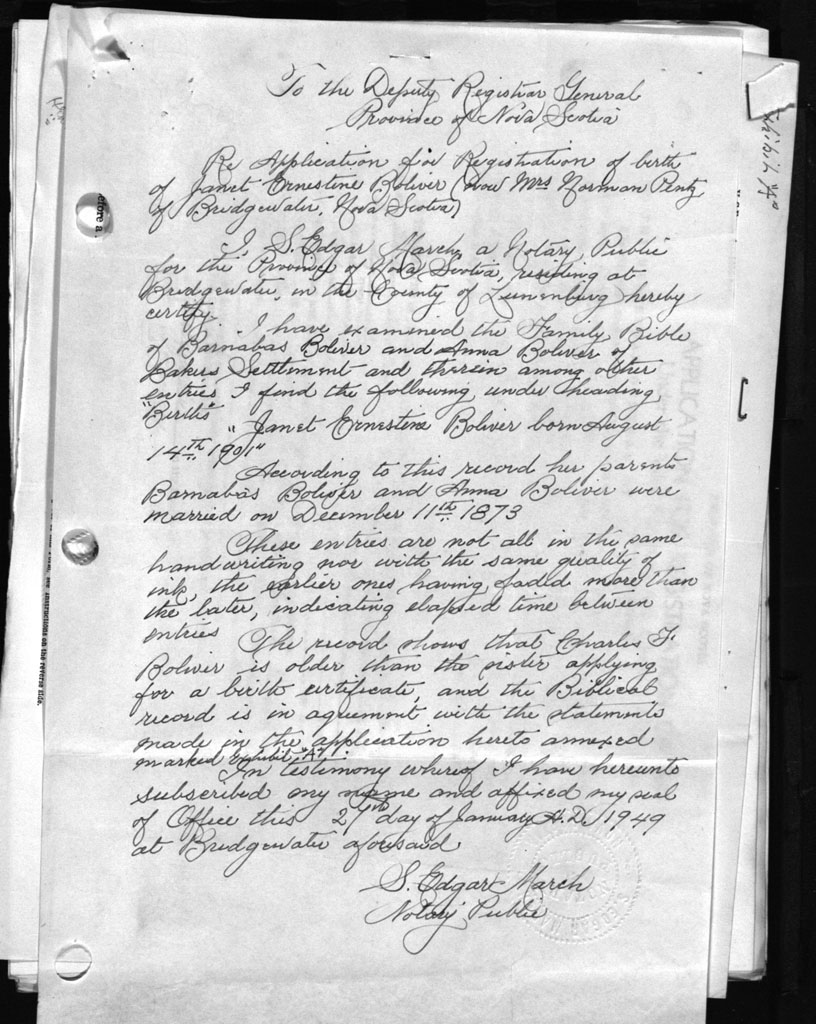 To the Deputy Registrar General
Province of Nova Scotia
Re Application for Registration of birth
of Janet Ernestine Boliver (now Mrs Norman Pentz
of Bridgewater, Nova Scotia)
I, S. Edgar March, a Notary Public
for the Province of Nova Scotia, residing at
Bridgewater, in the County of Lunenburg hereby
certify.
I have examined the Family Bible
of Barnabas Boliver and Anna Boliver of
Bakers Settlement and therein among other
entries I find the following under heading
"Births"
"Janet Ernestine Boliver born August
14th 1901"
According to this record her parents
Barnabas Boliver and Anna Boliver were
married on December 11th 1873
These entries are not all in the same
handwriting nor with the same quality of
ink, the earlier ones having faded more than
the later, indicating elapsed time between
entries
The record shows that Charles F.
Boliver is older than the sister applying
for a birth certificate, and the Biblical
record is in agreement with the statements
made in the application hereto annexed
marked Exhibit "A".
In testimony whereof I have hereunto
subscribed my name and affixed my seal
of Office this 27th day of January A.D. 1949
at Bridgewater aforesaid
S. Edgar March
Notary Public
Exhibit "A"
efore a
instructions on the reverse side.
APPLICATI